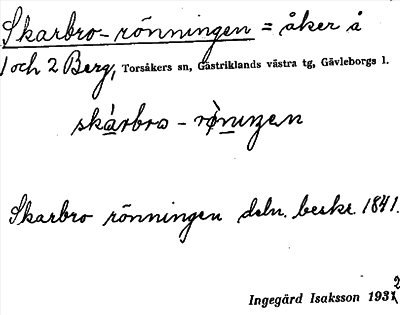 Skarbro-rönningen = åker å
1 och 2 Berg, Torsåkers sn, Gästriklands västra tg, Gävleborgs l.
Skarbro rönningen deln. beskr. 1841.
Ingegärd Isaksson 1932